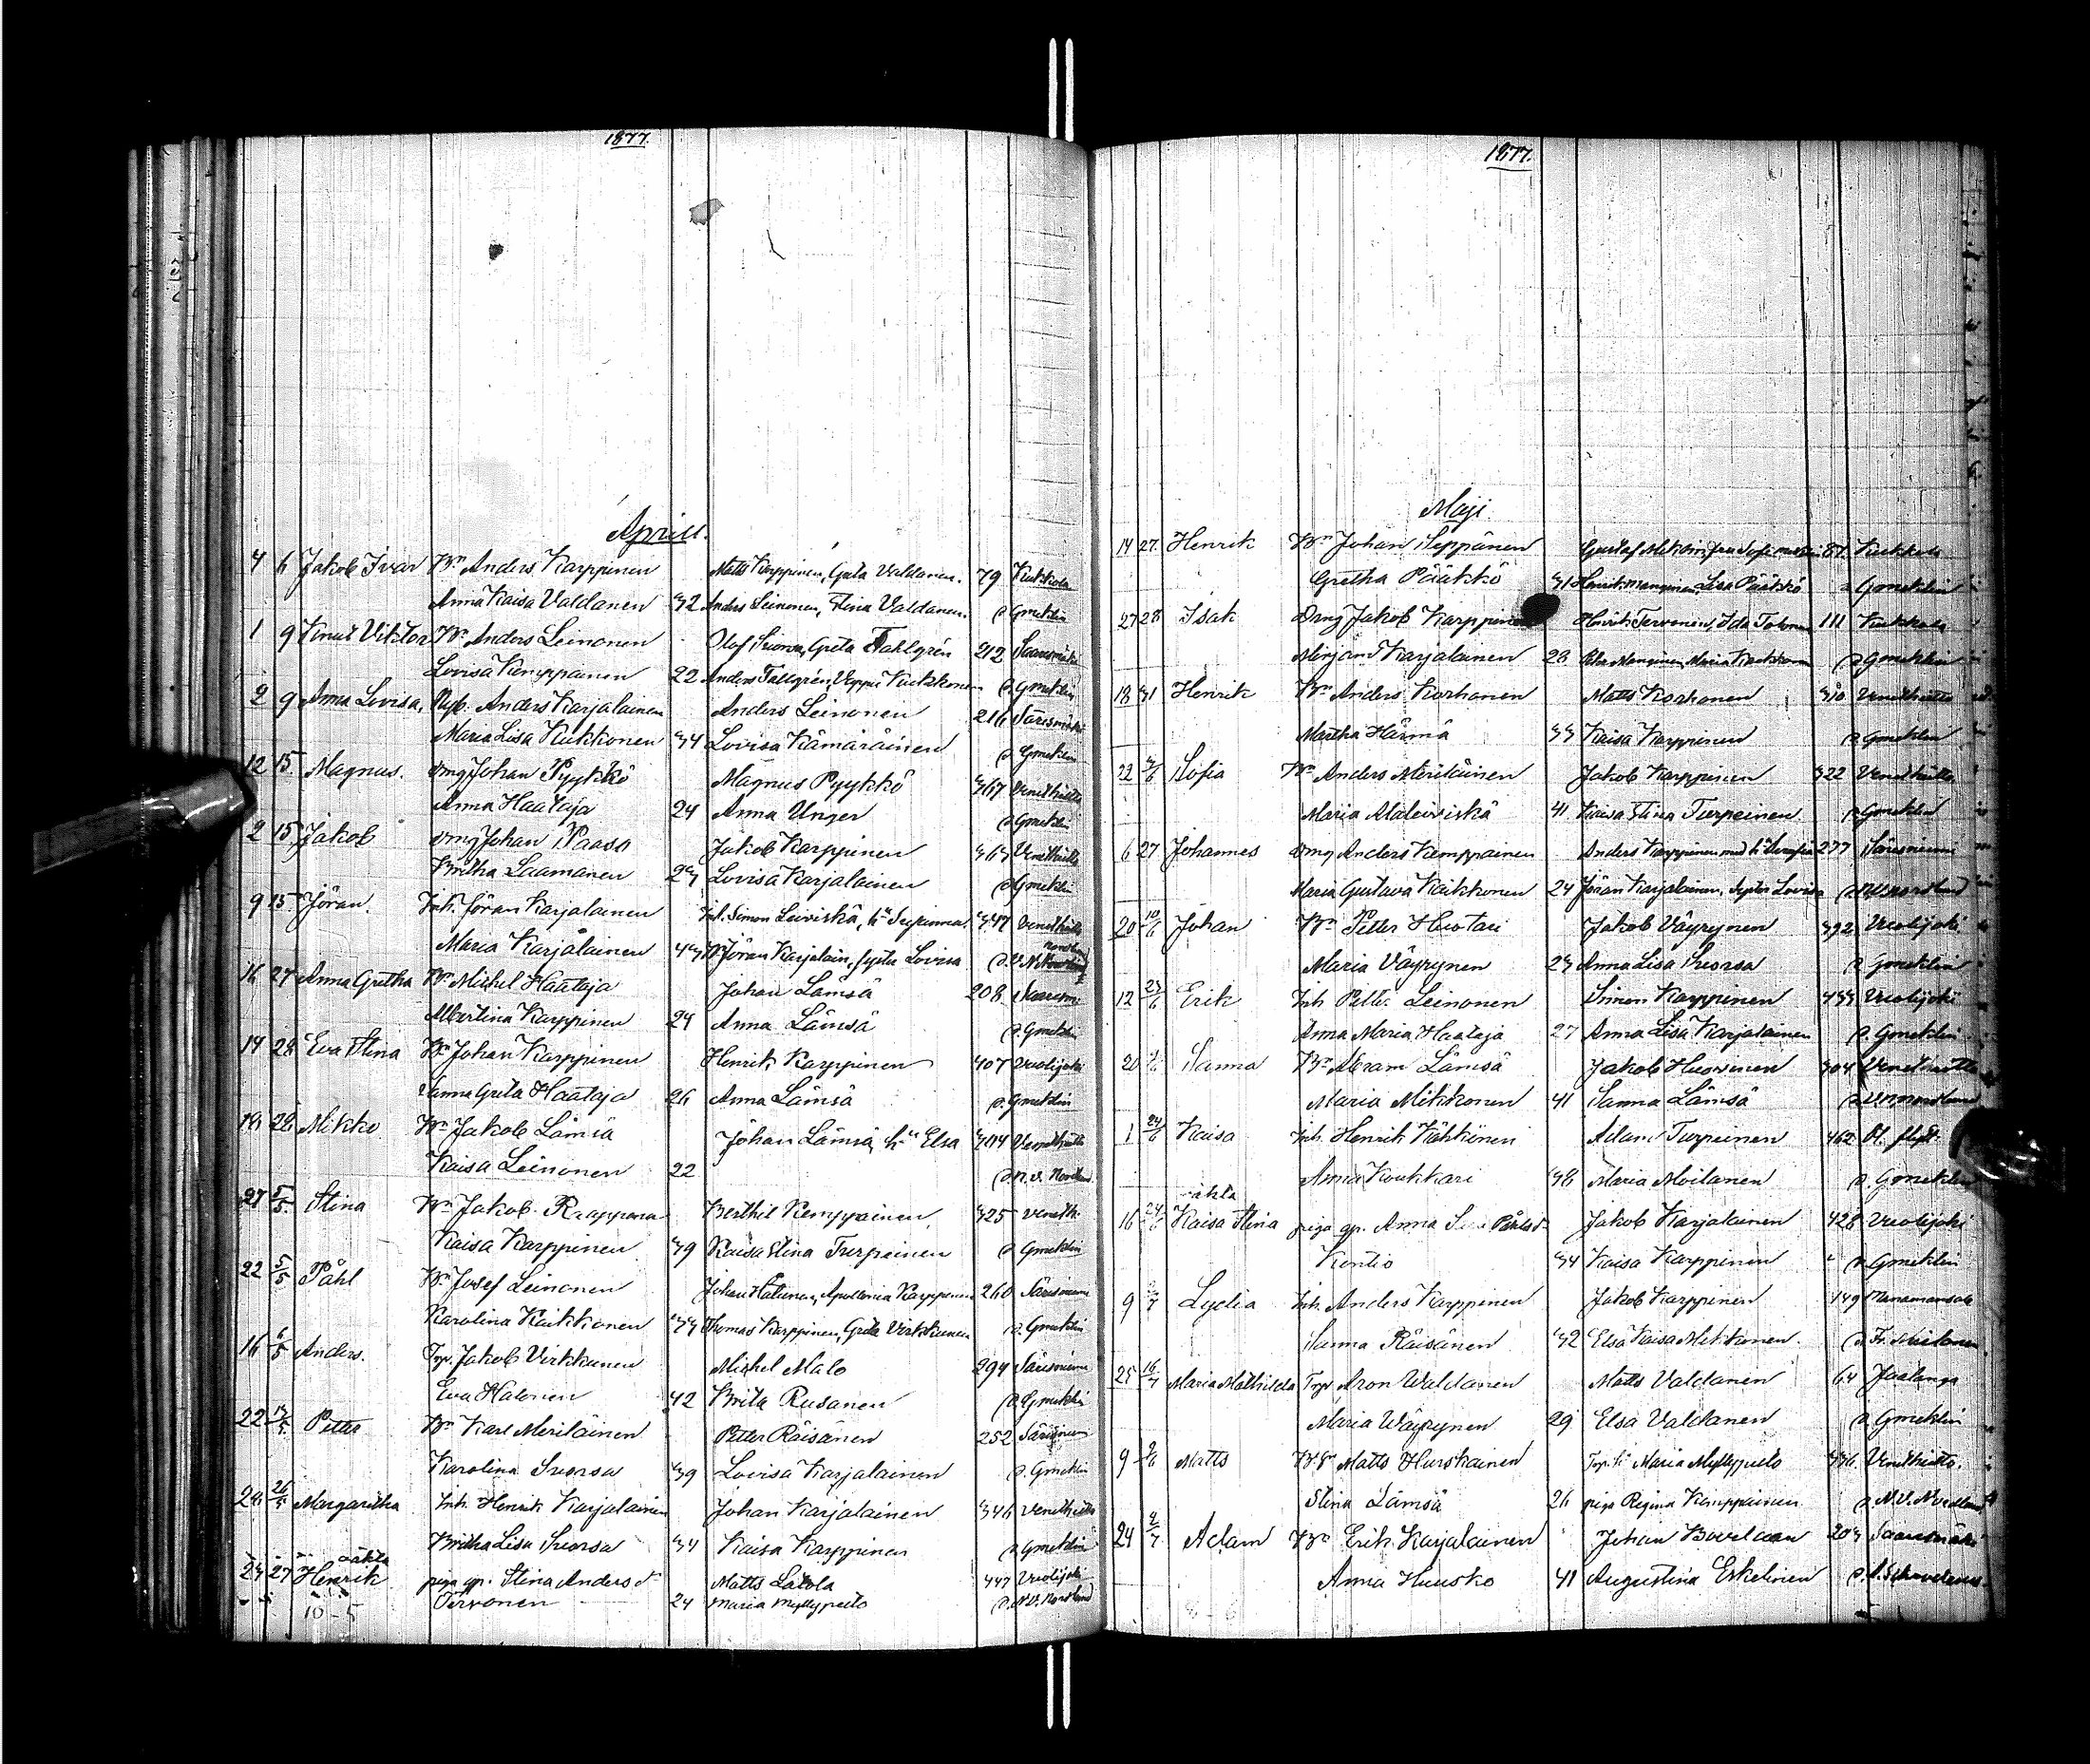 1877.
Aprill.
4 6 Jakob Ivar Bn Anders Karppinen Matts Karppinen, Greta Valdanen. 79 Kukkola
Anna Kaisa Valdanen 32 Anders Leinonen, Stina Valdanen. d. Gmeklin
1 9 Knut Viktor Bn Anders Leinonen Olof Suorsa, Greta Tahlgrén 212 Saaresmäki
Lovisa Kemppainen 22 Anders Tallgrén, Veppu Kukkonen d. Gmeklin
2 9 Anna Lovisa, Nyb. Anders Karjalainen Anders Leinonen 216 Säresmäki
Maria Lisa Kukkonen 34 Lovisa Kämäräinen d. Gmeklin
12 15 Magnus. drng Johan Pyykkö Magnus Pyykkö 367 Venetheitto
Anna Haataja 24 Anna Unger d. Gmeklin
2 15 Jakob drng Johan Paaso Jakob Karppinen 363 Venetheitto
Britha Laamanen 23 Lovisa Karjalainen d. Gmeklin
9 15 Jöran. Inh. Jöran Karjalainen Inh. Simon Leiviskä, hu Susanna. 347 Venetheitto
Maria Karjalainen 43 Bn Jöran Karjalain, syster Lovisa d. V. N. Nordlund
16 27 Anna Gretha Bn Mickel Haataja Johan Lämsä 208 Saaresm
Albertina Karppinen 24 Anna Lämsä d. Gmeklin
14 28 Eva Stina Bn Johan Karppinen Henrik Karppinen 407 Vuolijoki
Sanna Greta Haataja 26 Anna Lämsä d. Gmeklin
18 28 Mikko Bn Jakob Lämsä Johan Lämsä, hu Elsa 304 Venetheitto
Kaisa Leinonen 22 d. N. V. Nordlund
27 5/5 Stina Bn Jakob Raappana Berthil Kemppainen, 325 Veneth.
Kaisa Karppinen 39 Kaisa Stina Turpeinen d. Gmeklin
22 5/5 Påhl Bn Josef Leinonen Johan Halonen, Apollonia Karppinen 260 Säresniemi
Karolina Kaikkonen 33 Thomas Karppinen, Greta Virkkunen d. Gmeklin
16 6/5 Anders. Torp. Jakob Virkkunen Mickel Malo 294 Säresniemi
Eva Halonen 42 Brita Rusanen d. Gmeklin
22 13/5 Petter Bn Karl Meriläinen Petter Räisänen 252 Säresniemi
Karolina Suorsa 39 Lovisa Karjalainen d. Gmeklin
28 26/5 Margaretha Inh. Henrik Karjalainen Johan Karjalainen 346 Venetheitto
Britha Lisa Suorsa 34 Kaisa Karppinen d. Gmeklin
oäkta
23 27 Henrik piga gp. Stina Anders dr Matts Latola 447 Vuolijoki
10-5 Tervonen 24 Maria Myllypelto d. N. V. Nordlund
1877.
Maji
14 27 Henrik Bn Johan Seppänen 81. Kukkola
Gretha Pääkkö 31 Henrik Manninen, Lisa Pääkkö d. Gmeklin
27 28 Isak Drng Jakob Karppinen Henrik Tervonen, Ida 111 Kukkola
Mirjam Karjalainen 28 Petter Manninen, Maria Kaikkonen d. Gmeklin
18 31 Henrik Bn Anders Korhonen Matts Korhonen 310 Venetheitto
Martha Härmä 33 Kaisa Karppinen d. Gmeklin
22 3/6 Sofia Bn Anders Meriläinen Jakob Karppinen 322 Venetheitto
Maria Maleiviskä 41 Kaisa Stina Turpeinen d. Gmeklin
6 27 Johannes drng Anders Kemppainen Anders Karppinen med hu Serafia 277 Säresniemi
Maria Gustava Kaikkonen 24 Jöran Karjalainen, syster Lovisa d. N. V. Nordlund
20 10/6 Johan Bn Petter Huotari Jakob Väyrynen 392 Vuolijoki
Maria Väyrynen 23 Anna Lisa Suorsa d. Gmeklin
12 23/6 Erik Inh Petter Leinonen Simon Karppinen 433 Vuolijoki
Anna Maria Haataja 27 Anna Lisa Karjalainen d. Gmeklin
20 Sanna Bn Abram Lämsä Jakob Huovinen 304 Venetheitto
Maria Mikkonen 41 Sanna Lämsä d. V. N. Nordlund
1 24/6 Kaisa Inh. Henrik Kähkönen Adam Turpeinen 462
Anna Koukkari 38 Maria Moilanen d. Gmeklin
oäkta
16 24/6 Kaisa Stina piga gp. Anna Påhlsdr Jakob Karjalainen 428 Vuolijoki
Kontio 34 Kaisa Karppinen d. Gmeklin
9 Lydia Inh. Anders Karppinen Jakob Karppinen 149 Manamansalo
Sanna Räisänen 32 Elsa Kaisa Mikkonen.
25 16/7 Maria Mathilda Torp Aron Waldanen Matts Valdanen 64 Jaalanga
Maria Wäyrynen 29 Elsa Valdanen d. Gmeklin
9 9/6 Matts Matts Hurskainen Maria Myllypelto 336 Venetheitto.
Stina Lämsä 26 piga Regina Kemppainen d. N. V. Nordlund
24 2/7 Adam Bn Erik Karjalainen Johan Bovelan 203 Saaresmäki
Anna Huusko 41 Augustina Eskelinen